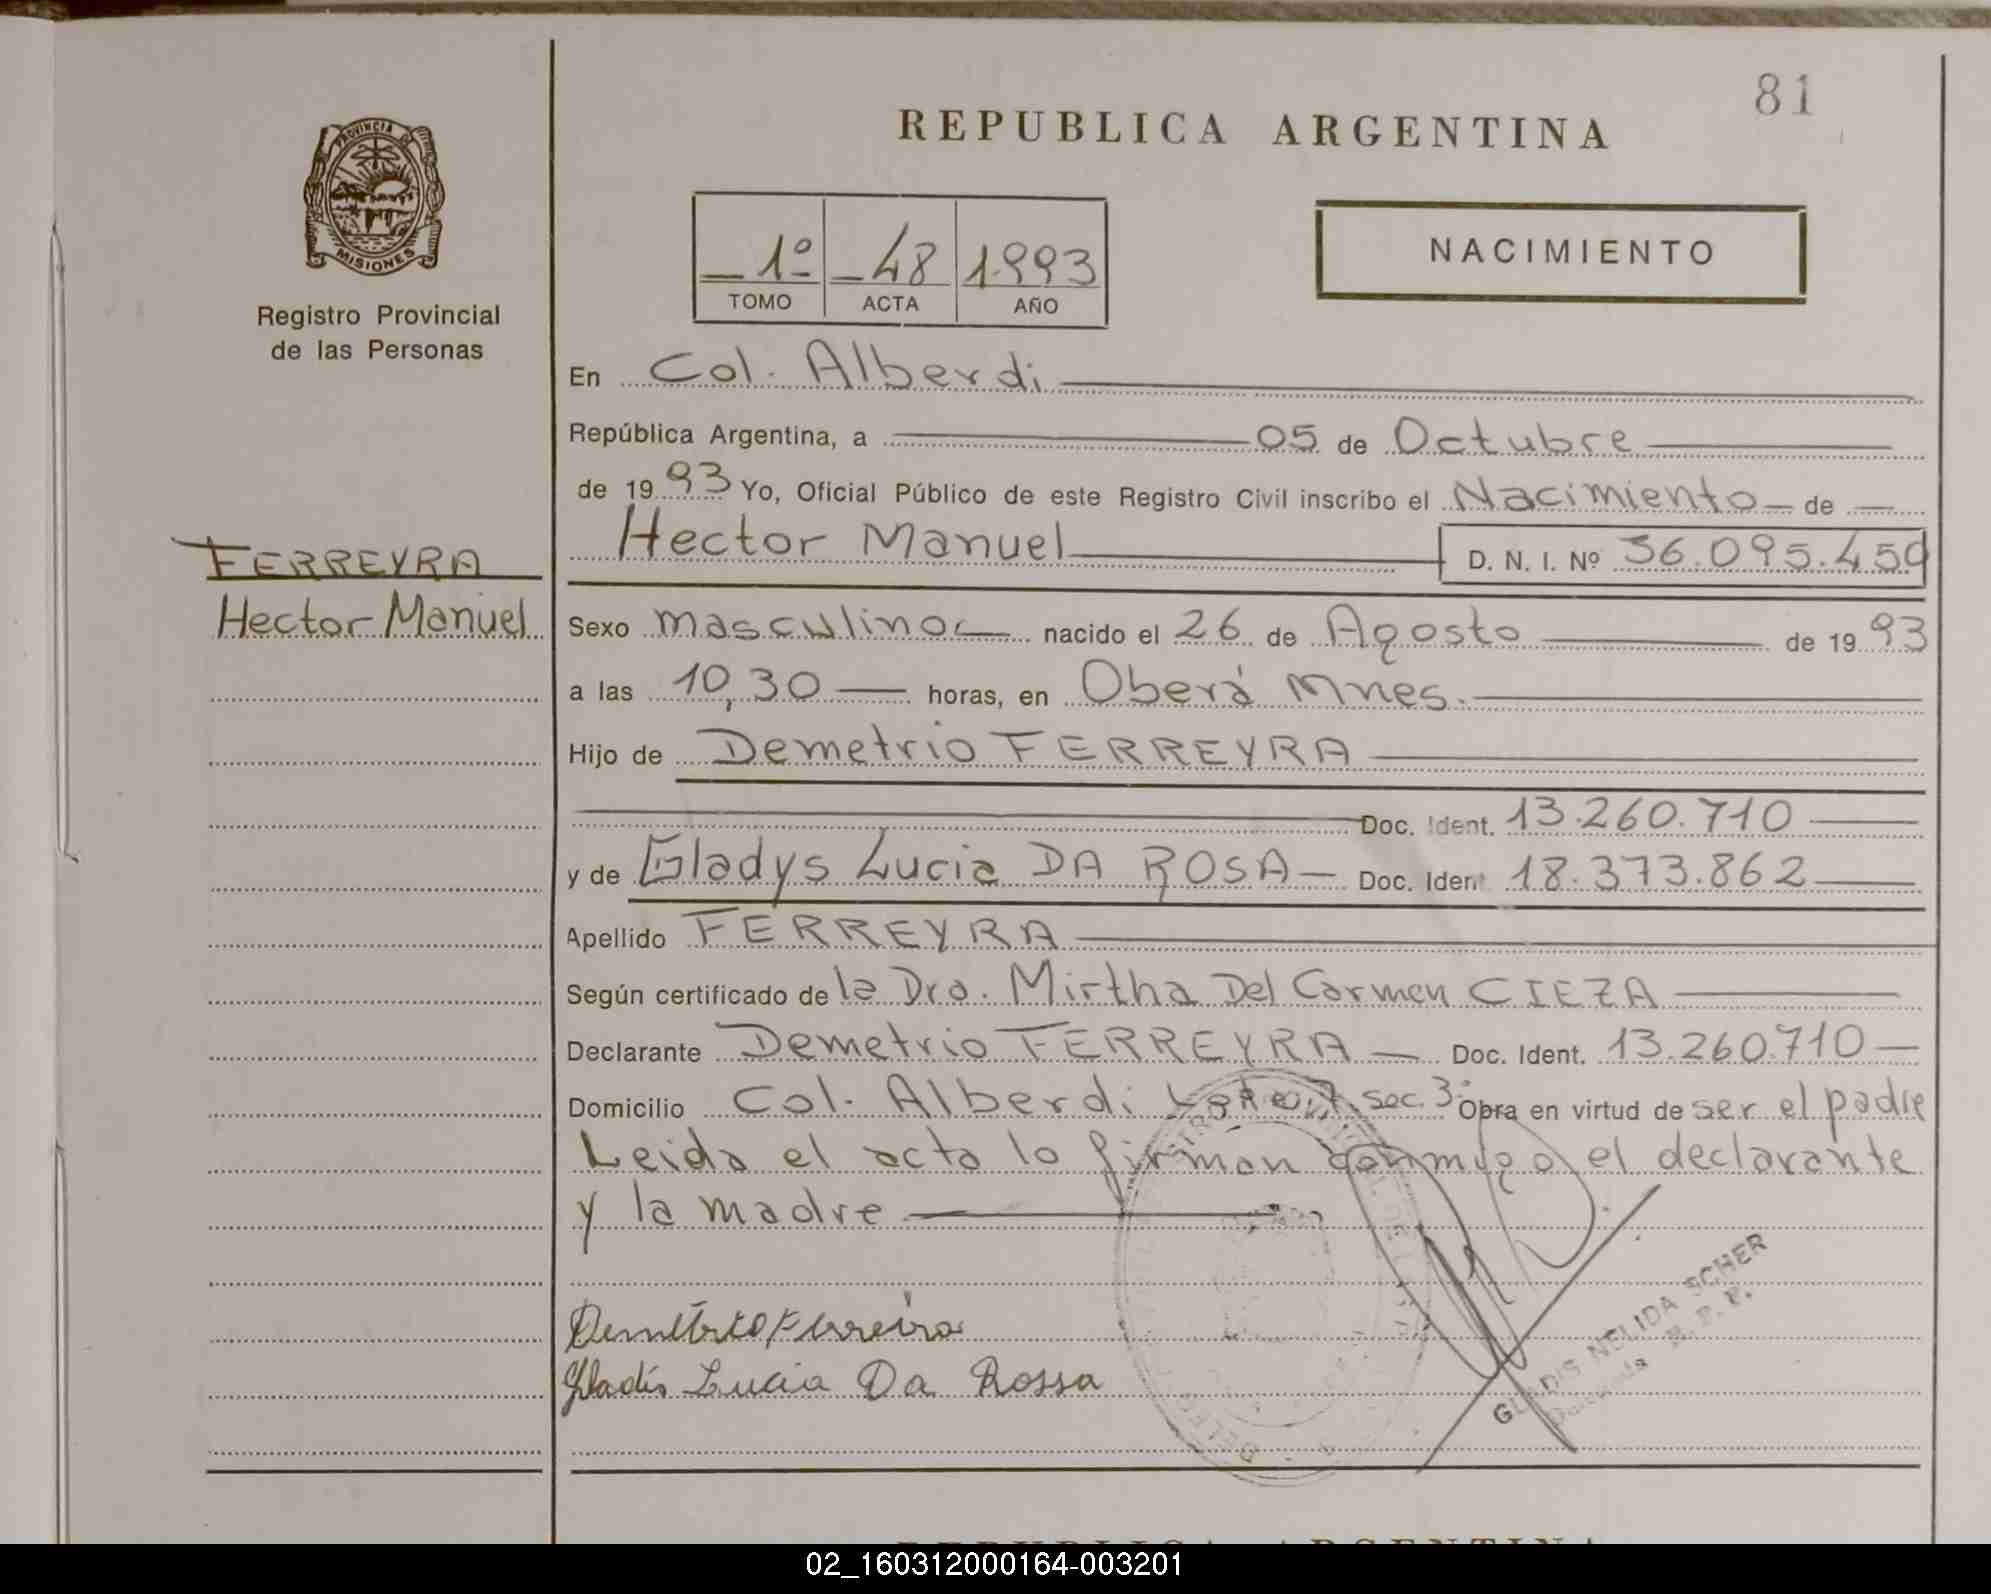 81
REPUBLICA ARGENTINA
PROVINCIA DE
MISIONES
Registro Provincial
de las Personas
1º 48 1993
TOMO ACTA AÑO
NACIMIENTO
En Col. Alberdi
República Argentina, a 05 de Octubre
de 1993 Yo, Oficial Público de este Registro Civil inscribo el Nacimiento de
Hector Manuel D. N. I. Nº 36.095.459
FERREYRA
Hector Manuel
Sexo masculino nacido el 26 de Agosto de 1993
a las 10,30 horas, en Oberá Mnes.
Hijo de Demetrio FERREYRA
Doc. Ident. 13.260.710
y de Gladys Lucia DA ROSA Doc. Ident. 18.373.862
Apellido FERREYRA
Según certificado de la Dra. Mirtha Del Carmen CIEZA
Declarante Demetrio FERREYRA Doc. Ident. 13.260.710
Domicilio Col. Alberdi Lote 7 sec. 3º Obra en virtud de ser el padre
Leida el acta la firman conmigo el declarante
y la madre
Demetrio Ferreira
Gladis Lucia Da Rossa
GLADIS NELIDA SCHER
REPUBLICA ARGENTINA
02_160312000164-003201